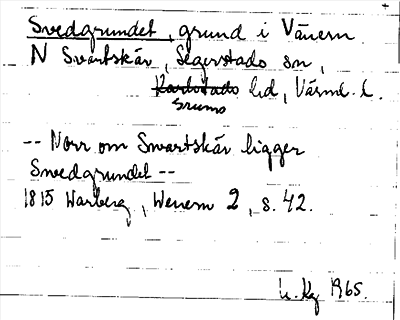 Svedgrundet, grund i Vänern
N Svartskär, Segerstads sn,
Karlstads hd, Värml. l.
Grums
-- Norr om Swartskär ligger
Swedgrundet --
1815 Warberg, Wenern 2, s. 42.
1965.